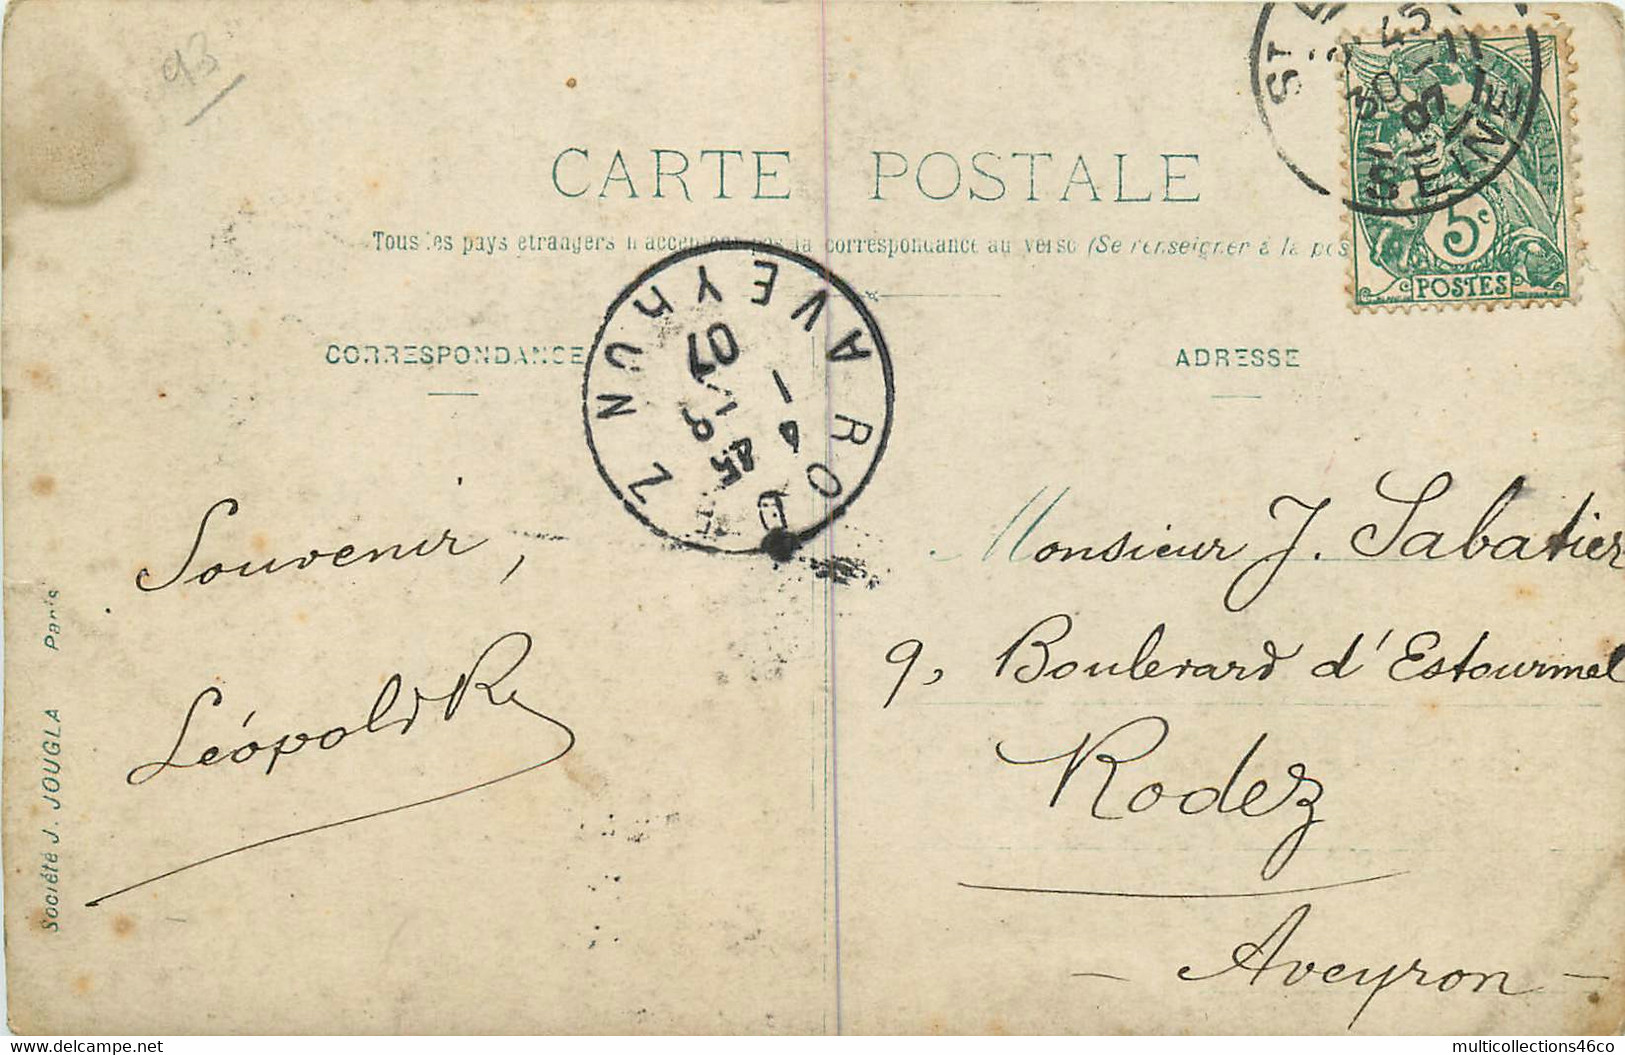 93
CARTE POSTALE
Tous les pays étrangers n'acceptent pas la correspondance au verso (Se renseigner à la pos
CORRESPONDANCE
ADRESSE
5c
POSTES
ST
45
30 -11
07
SEINE
RODEZ AVEYRON
4 -
07
Souvenir,
Léopold R
Monsieur J. Sabatier
9, Boulevard d'Estourmel
Rodez
- Aveyron -
Société J. JOUGLA Paris
delcampe.net
multicollections46co